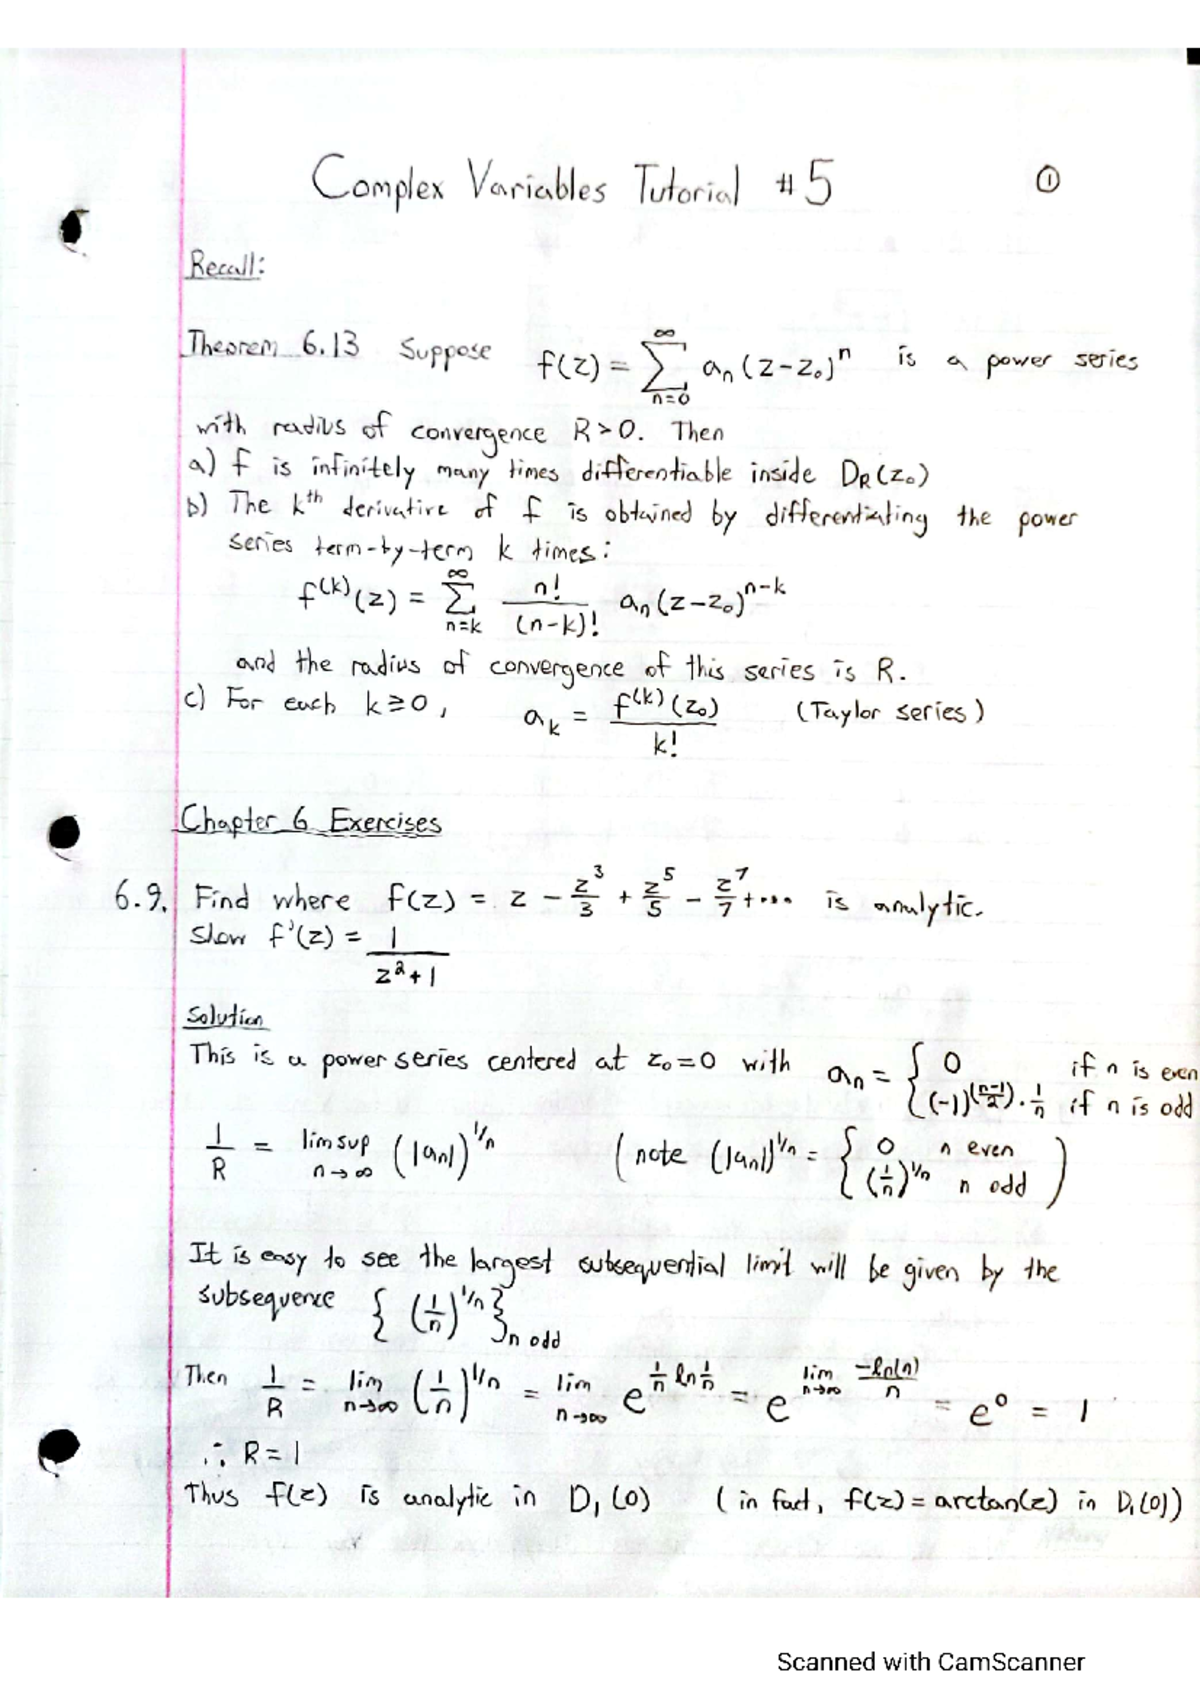 Complex Variables Tutorial #5 ①
Recall:
Theorem 6.13 Suppose f(z) = ∑_{n=0}^{∞} aₙ(z-z₀)ⁿ is a power series
with radius of convergence R>0. Then
a) f is infinitely many times differentiable inside D_R(z₀)
b) The kᵗʰ derivative of f is obtained by differentiating the power
series term-by-term k times:
f^(k)(z) = ∑_{n=k}^{∞} n!/(n-k)! aₙ(z-z₀)^{n-k}
and the radius of convergence of this series is R.
c) For each k≥0, a_k = f^(k)(z₀)/k! (Taylor series)
Chapter 6 Exercises
6.9. Find where f(z) = z - z³/3 + z⁵/5 - z⁷/7 + ... is analytic.
Show f'(z) = 1/(z²+1)
Solution
This is a power series centered at z₀=0 with aₙ = { 0 if n is even
(-1)^((n-1)/2) · 1/n if n is odd
1/R = limsup_{n→∞} (|aₙ|)^{1/n} (note (|aₙ|)^{1/n} = { 0 n even
(1/n)^{1/n} n odd )
It is easy to see the largest subsequential limit will be given by the
subsequence { (1/n)^{1/n} }_{n odd}
Then 1/R = lim_{n→∞} (1/n)^{1/n} = lim_{n→∞} e^{1/n ln 1/n} = e^{lim_{n→∞} -ln(n)/n} = e⁰ = 1
∴ R=1
Thus f(z) is analytic in D₁(0) (in fact, f(z) = arctan(z) in D₁(0))
Scanned with CamScanner